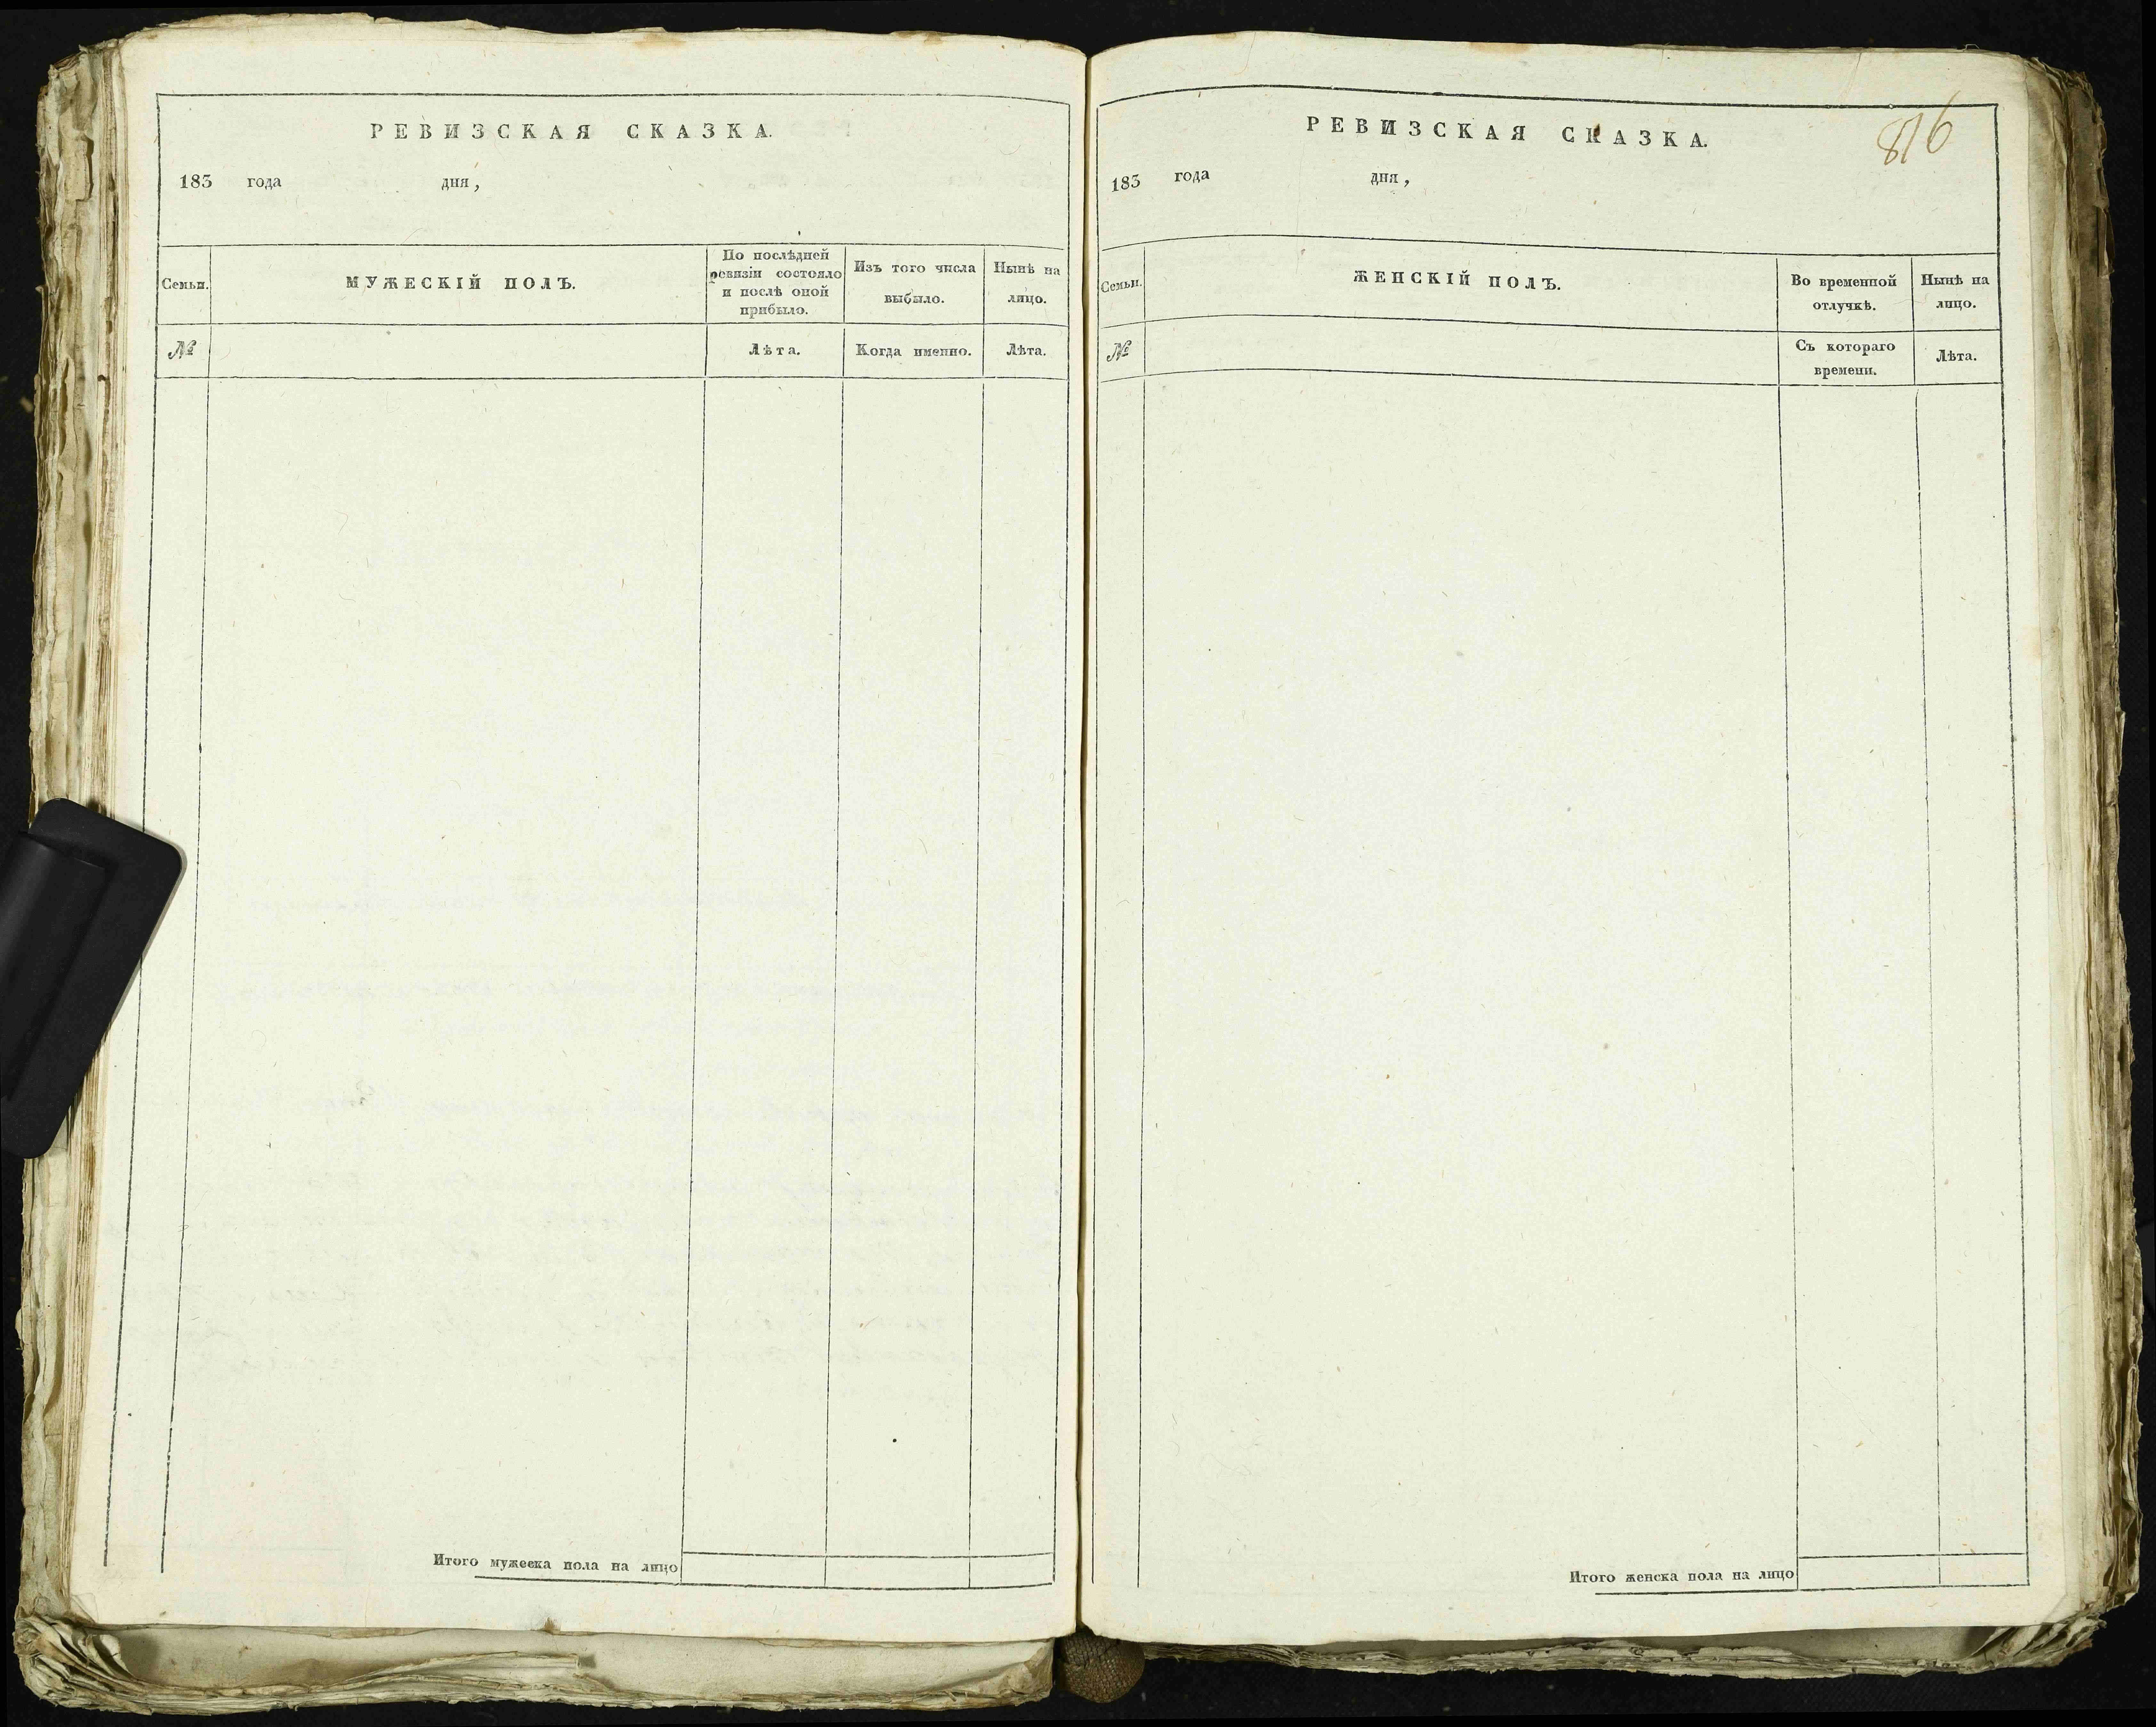 РЕВИЗСКАЯ СКАЗКА.
183 года дня,
Семьи.
МУЖЕСКІЙ ПОЛЪ.
По послѣдней
ревизіи состояло
и послѣ оной
прибыло.
Изъ того числа
выбыло.
Нынѣ на
лицо.
№
Лѣта.
Когда именно.
Лѣта.
Итого мужеска пола на лицо
РЕВИЗСКАЯ СКАЗКА.
816
183 года дня,
Семьи.
ЖЕНСКІЙ ПОЛЪ.
Во временной
отлучкѣ.
Нынѣ на
лицо.
№
Съ котораго
времени.
Лѣта.
Итого женска пола на лицо